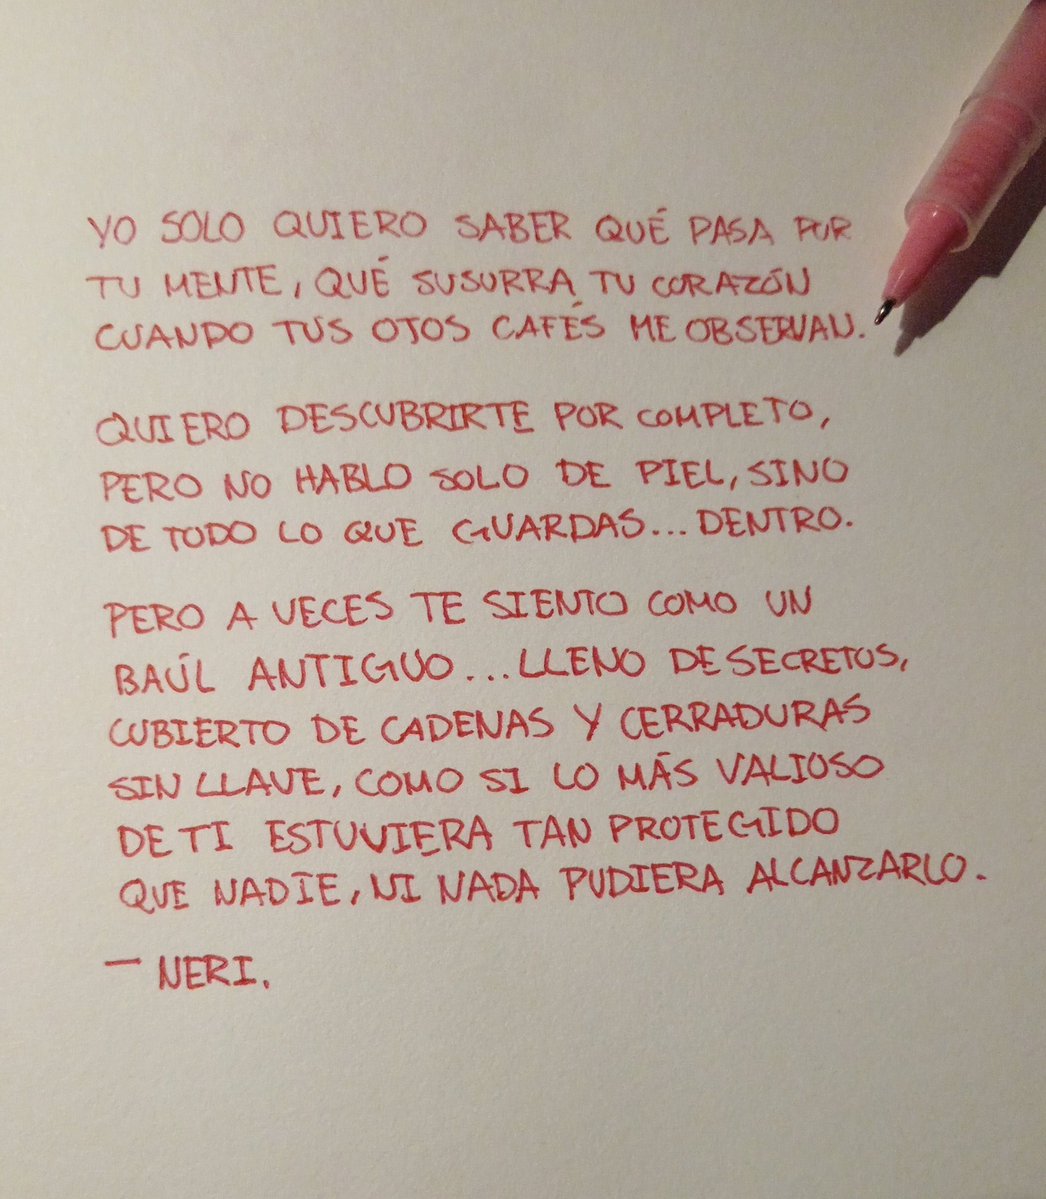 YO SOLO QUIERO SABER QUÉ PASA POR
TU MENTE, QUÉ SUSURRA TU CORAZÓN
CUANDO TUS OJOS CAFÉS ME OBSERVAN.
QUIERO DESCUBRIRTE POR COMPLETO,
PERO NO HABLO SOLO DE PIEL, SINO
DE TODO LO QUE GUARDAS... DENTRO.
PERO A VECES TE SIENTO COMO UN
BAÚL ANTIGUO... LLENO DE SECRETOS,
CUBIERTO DE CADENAS Y CERRADURAS
SIN LLAVE, COMO SI LO MÁS VALIOSO
DE TI ESTUVIERA TAN PROTEGIDO
QUE NADIE, NI NADA PUDIERA ALCANZARLO.
— NERI.